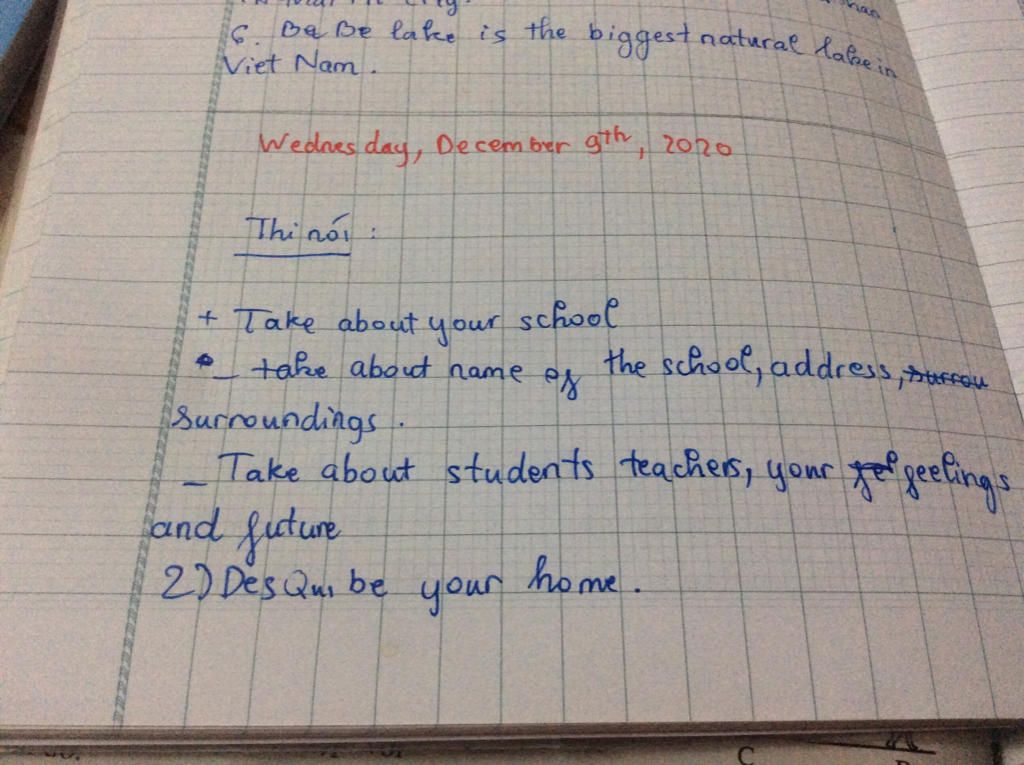 6. Ba Be lake is the biggest natural lake in
Viet Nam.
Wednesday, December 9th, 2020
Thi nói:
+ Take about your school
_ take about name of the school, address,
surroundings.
_ Take about students teachers, your feelings
and future
2) DesQuibe your home.
C